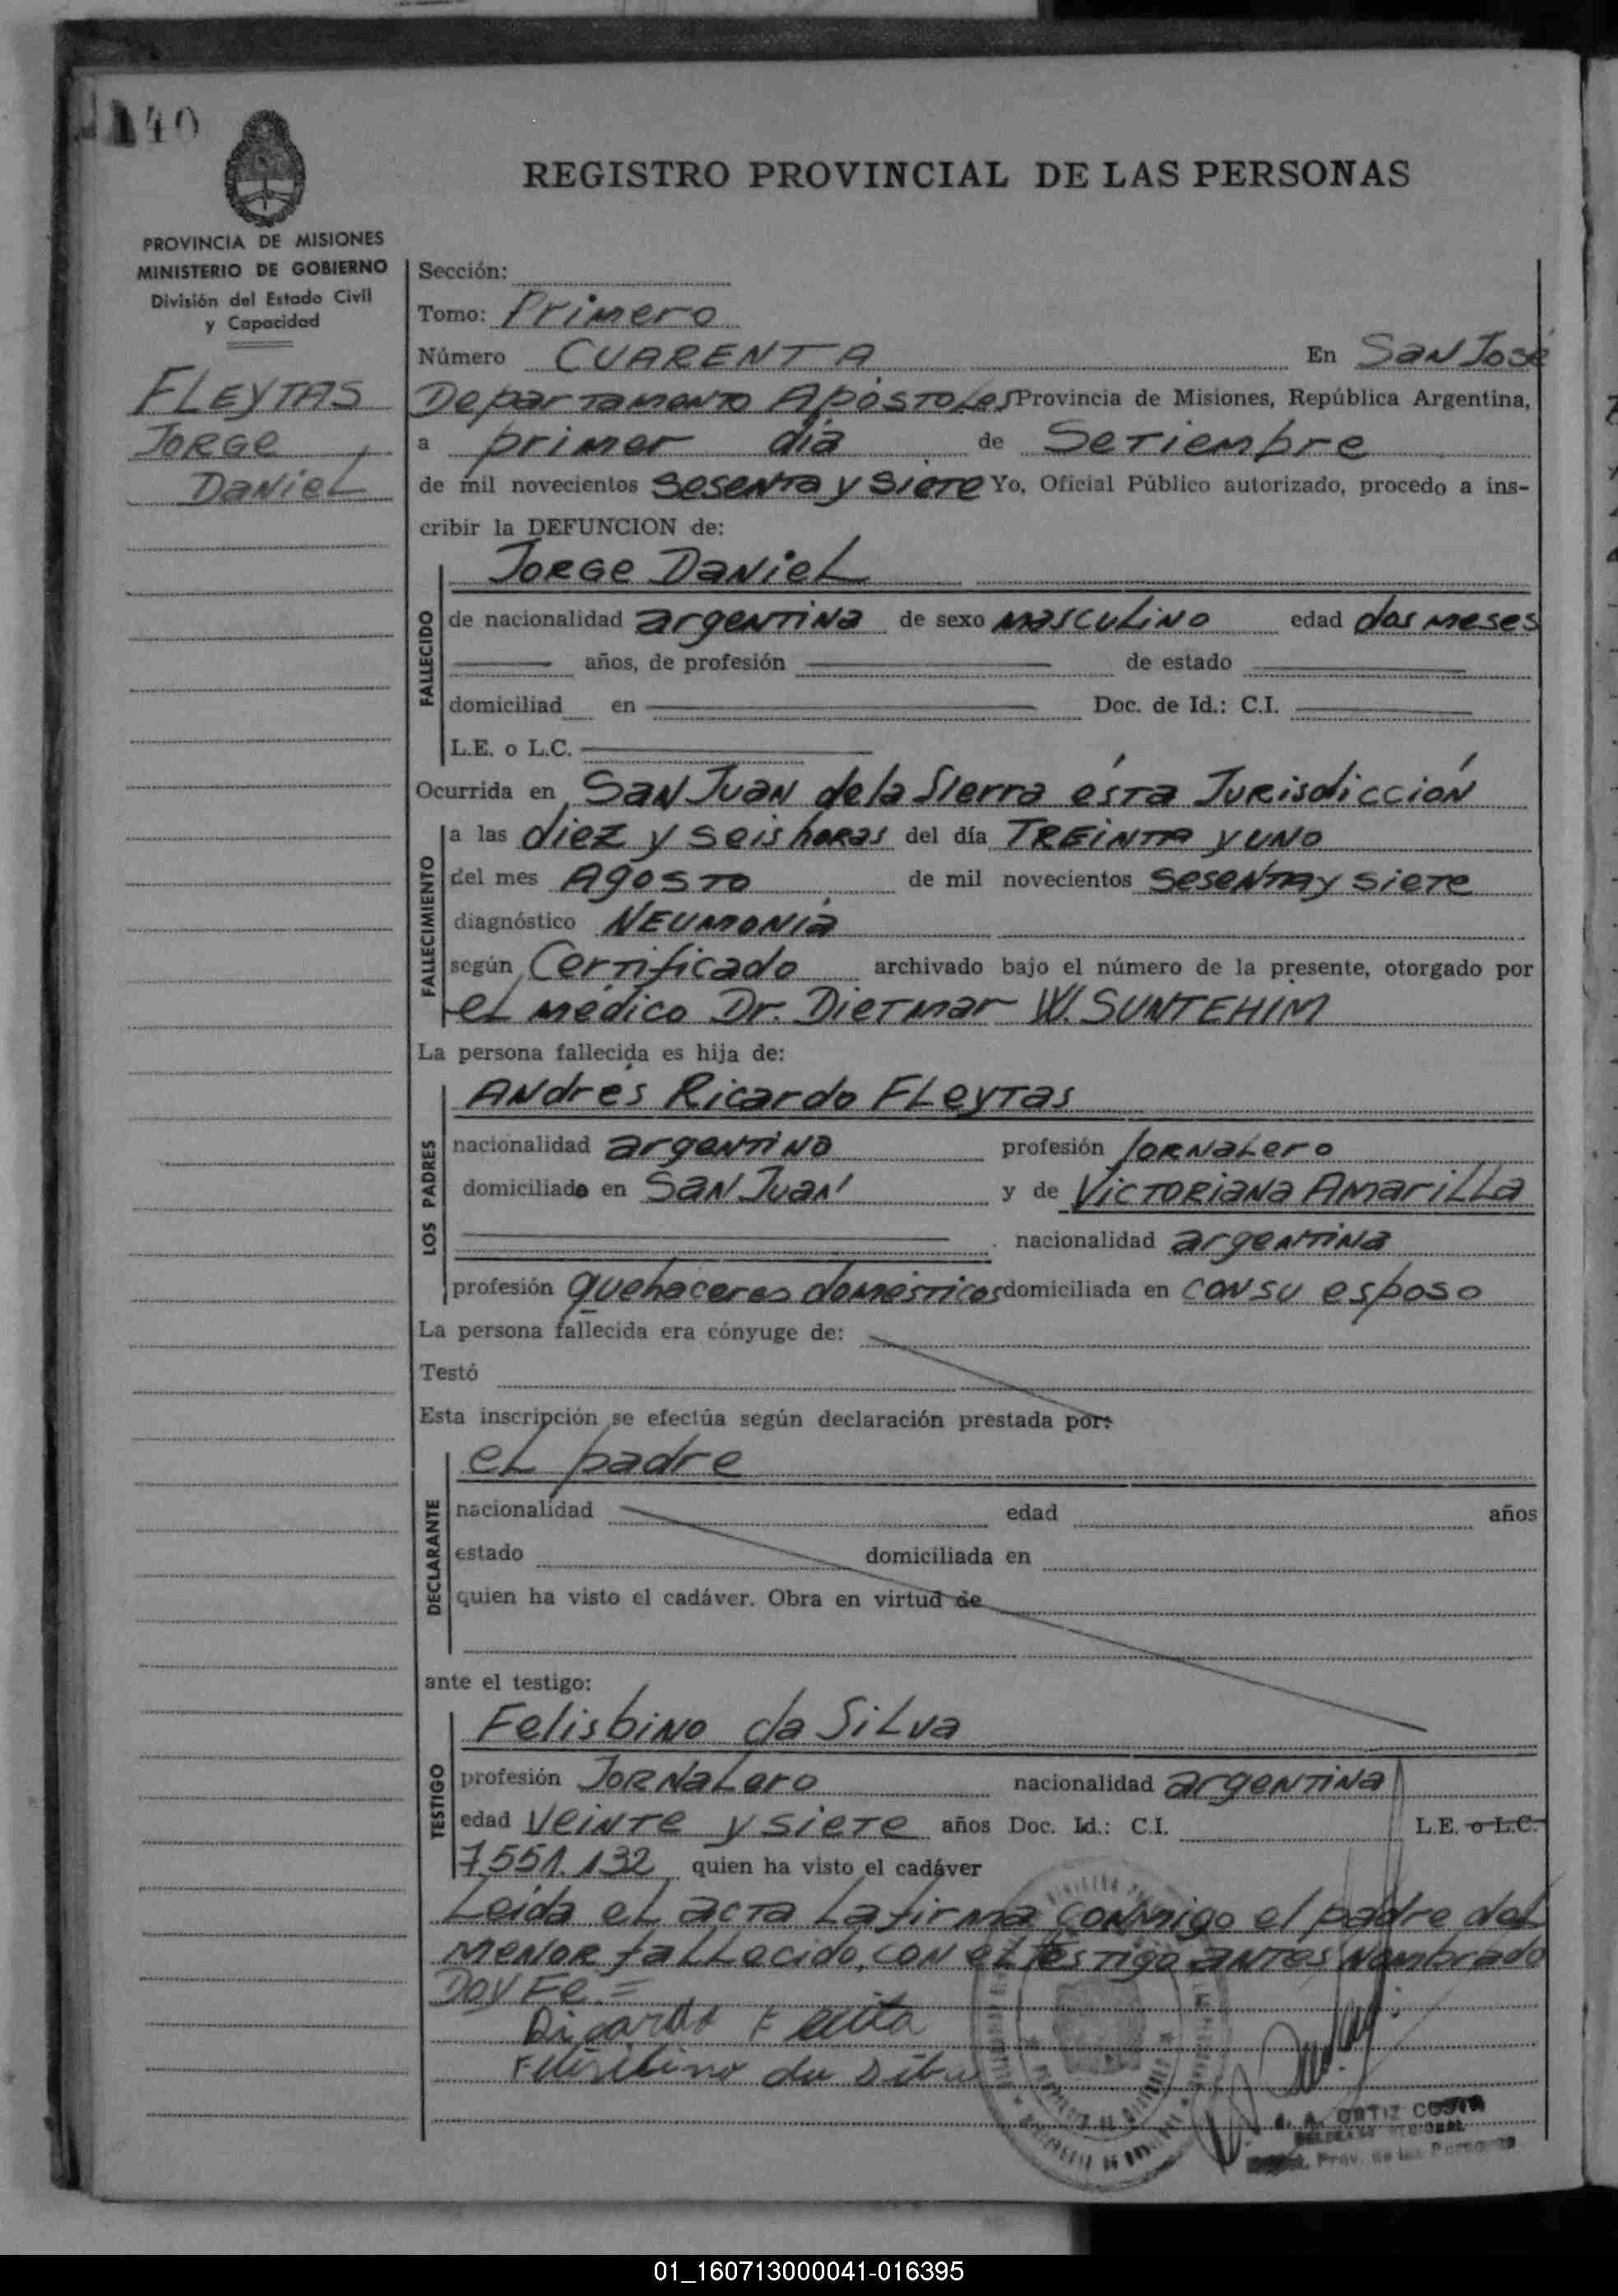 140
REGISTRO PROVINCIAL DE LAS PERSONAS
PROVINCIA DE MISIONES
MINISTERIO DE GOBIERNO
División del Estado Civil
y Capacidad
FLEYTAS
JORGE
DANIEL
Sección:
Tomo: Primero
Número CUARENTA En San José
Departamento Apóstoles Provincia de Misiones, República Argentina,
a primer día de Setiembre
de mil novecientos sesenta y siete Yo, Oficial Público autorizado, procedo a ins-
cribir la DEFUNCION de:
Jorge Daniel
FALLECIDO
de nacionalidad argentina de sexo masculino edad dos meses
años, de profesión de estado
domiciliad en Doc. de Id.: C.I.
L.E. o L.C.
Ocurrida en San Juan de la Sierra ésta Jurisdicción
FALLECIMIENTO
a las diez y seis horas del día TREINTA y UNO
del mes Agosto de mil novecientos sesenta y siete
diagnóstico NEUMONIA
según Certificado archivado bajo el número de la presente, otorgado por
el médico Dr. Dietmar W. SUNTEHIM
La persona fallecida es hija de:
LOS PADRES
Andrés Ricardo Fleytas
nacionalidad argentino profesión Jornalero
domiciliado en San Juan y de Victoriana Amarilla
nacionalidad argentina
profesión quehaceres domésticos domiciliada en con su esposo
La persona fallecida era cónyuge de:
Testó
Esta inscripción se efectúa según declaración prestada por:
DECLARANTE
el padre
nacionalidad edad años
estado domiciliada en
quien ha visto el cadáver. Obra en virtud de
ante el testigo:
TESTIGO
Felisbino da Silva
profesión Jornalero nacionalidad argentina
edad veinte y siete años Doc. Id.: C.I. L.E. o L.C.
7.551.132 quien ha visto el cadáver
Leida el acta la firma conmigo el padre del
menor fallecido, con el testigo antes nombrado
Doy Fe.=
Ricardo
da
A. ORTIZ COSTA
Prov. de las Personas
01_160713000041-016395